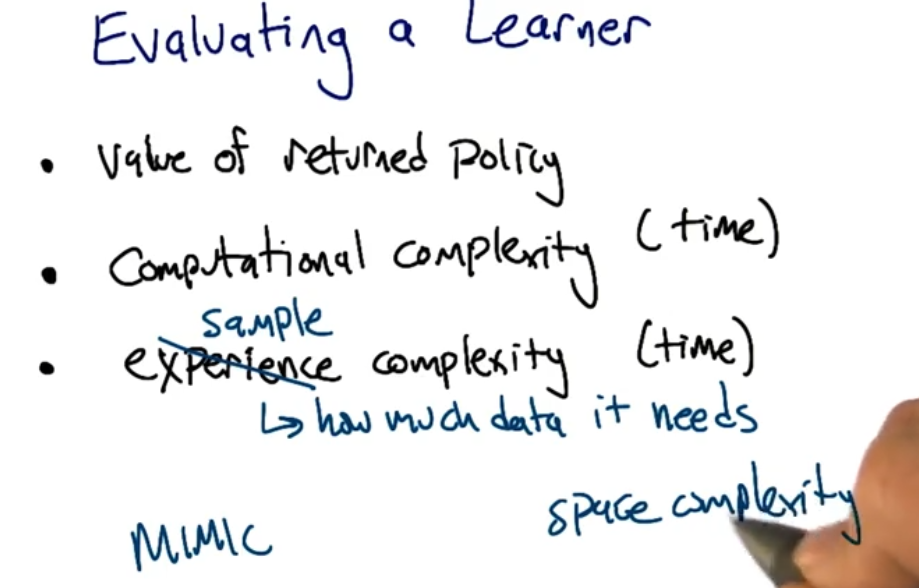 Evaluating a Learner
• Value of returned policy
• Computational complexity (time)
sample
• experience complexity (time)
↳ how much data it needs
space complexity
MIMIC